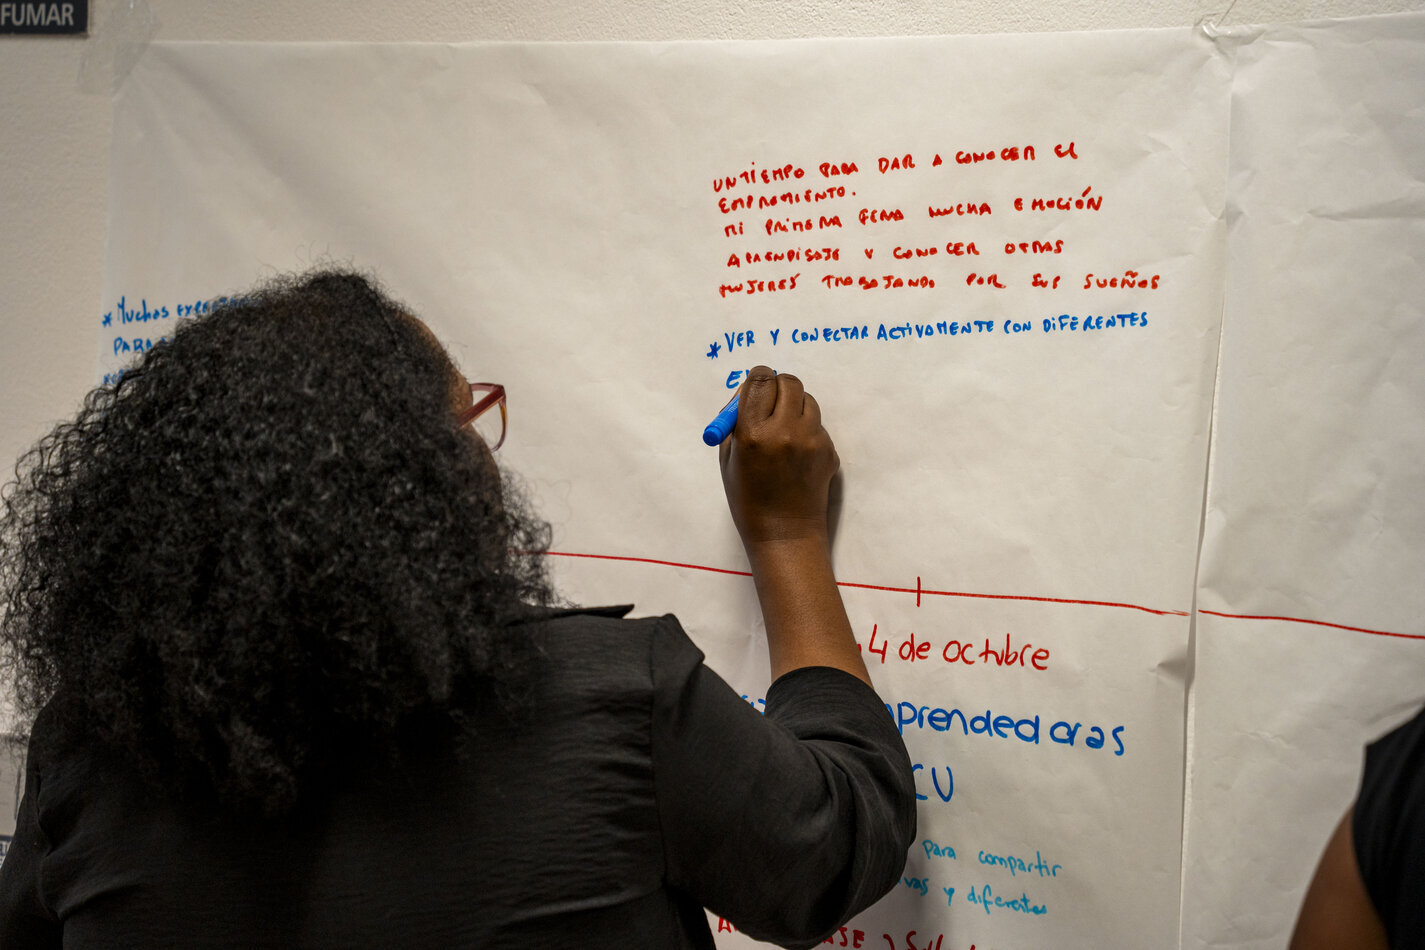 FUMAR
UN TIEMPO PARA DAR A CONOCER El
EMPRMIENTO.
MI PRIMERA FERIA MUCHA EMOCIÓN
APRENDISAJE Y CONOCER OTRAS
MUJERES TRABAJANDO POR SUS SUEÑOS
* Muchas
PARA
* VER Y CONECTAR ACTIVAMENTE CON DIFERENTES
4 de octubre
mprendedoras
CU
para compartir
vas y diferentes